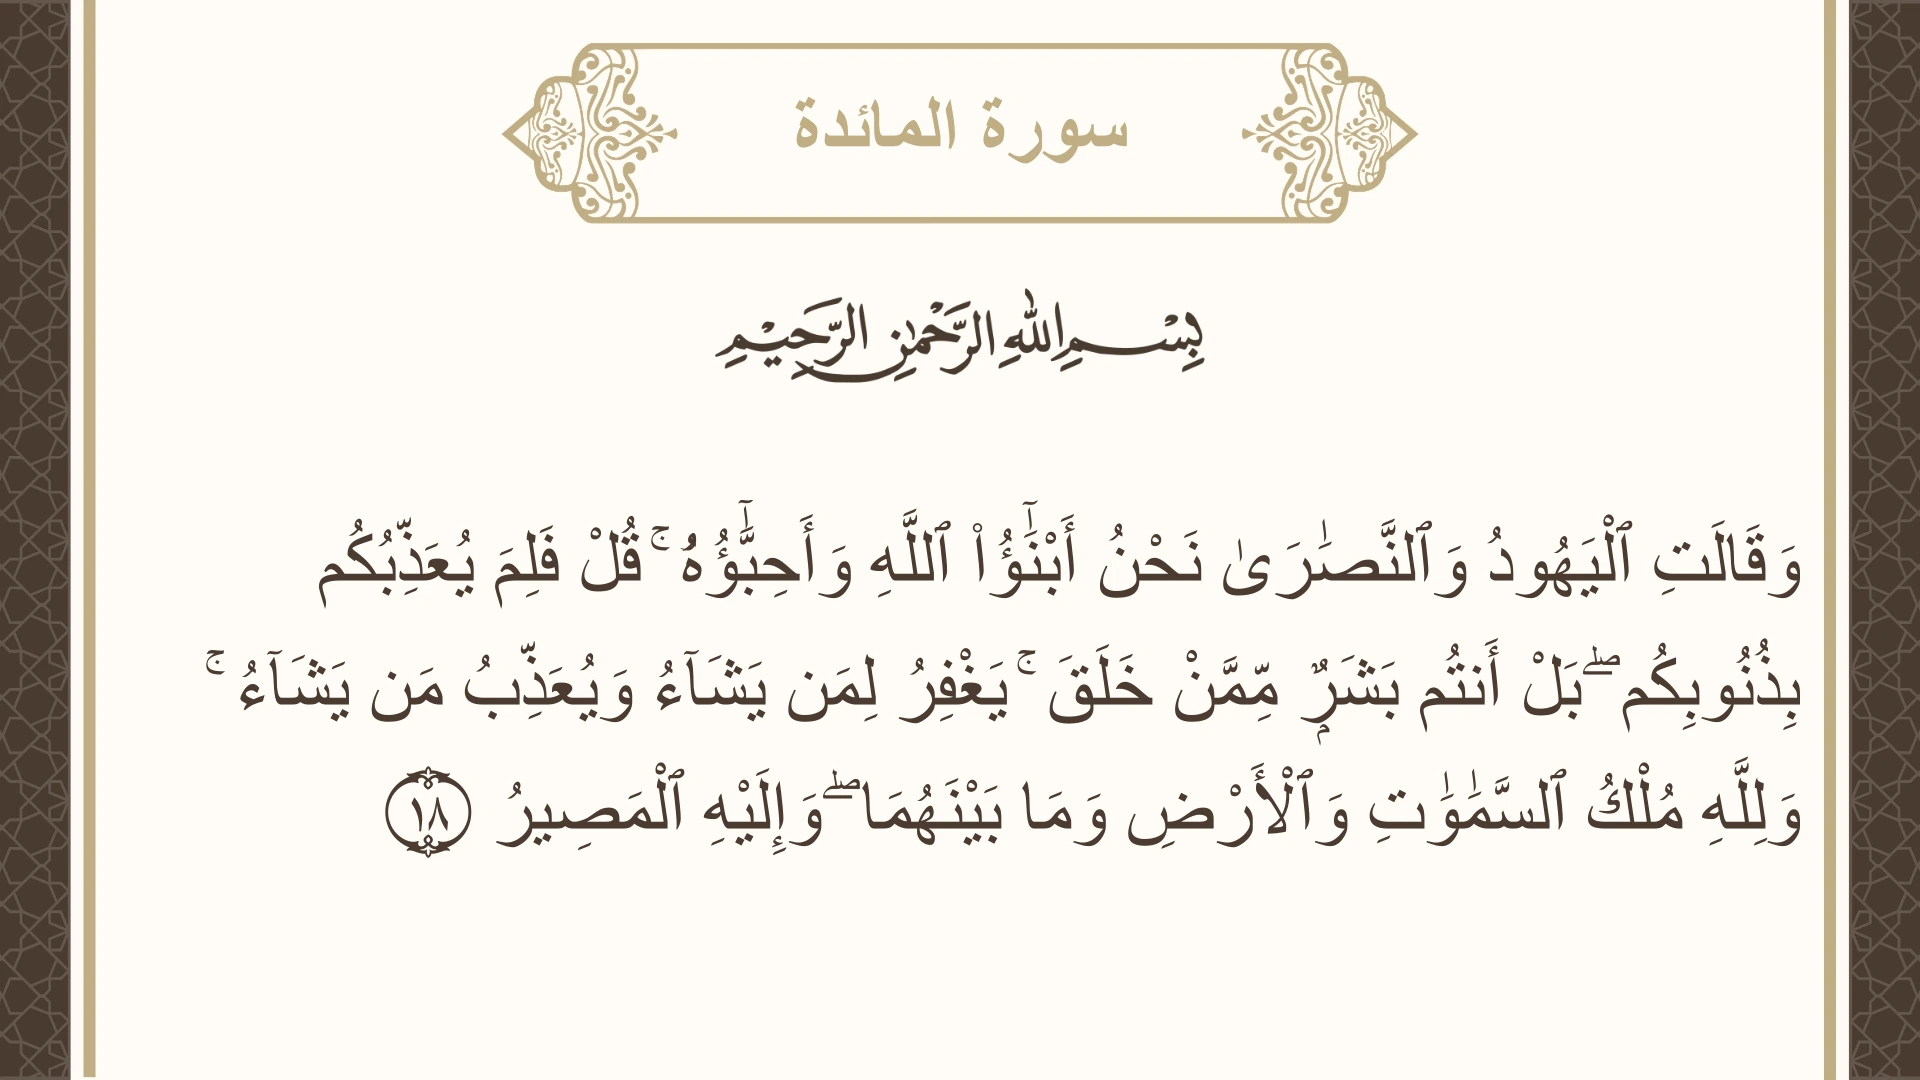 سورة المائدة
بِسْمِ اللهِ الرَّحْمٰنِ الرَّحِيْمِ
وَقَالَتِ ٱلْيَهُودُ وَٱلنَّصَـٰرَىٰ نَحْنُ أَبْنَـٰٓؤُا۟ ٱللَّهِ وَأَحِبَّـٰٓؤُهُۥ ۚ قُلْ فَلِمَ يُعَذِّبُكُم
بِذُنُوبِكُم ۖ بَلْ أَنتُم بَشَرٌۭ مِّمَّنْ خَلَقَ ۚ يَغْفِرُ لِمَن يَشَآءُ وَيُعَذِّبُ مَن يَشَآءُ ۚ
وَلِلَّهِ مُلْكُ ٱلسَّمَـٰوَٰتِ وَٱلْأَرْضِ وَمَا بَيْنَهُمَا ۖ وَإِلَيْهِ ٱلْمَصِيرُ ١٨